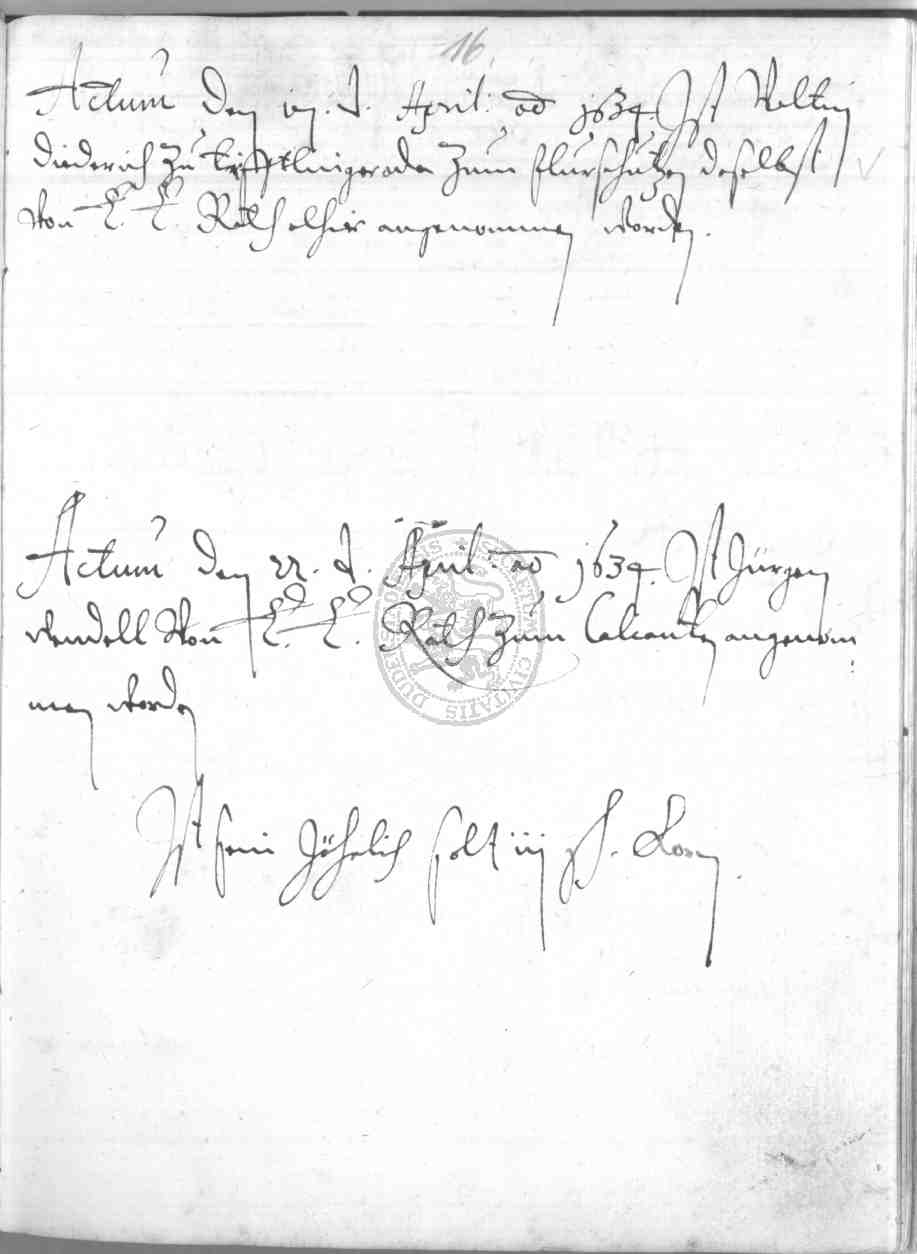 16
Actum den iij. d. April: ao 1634. Ist Velten
Diederich zu Tifftlingeroda zum flurschützen daselbst
von E. E. Rath alhier angenommen worden.
Actum den 22. d. April: ao 1634. Ist Jürgen
Wendell von E. E. Rath zum Calcanten angenom
men worden
Ist sein Jährlich solt iij Korn